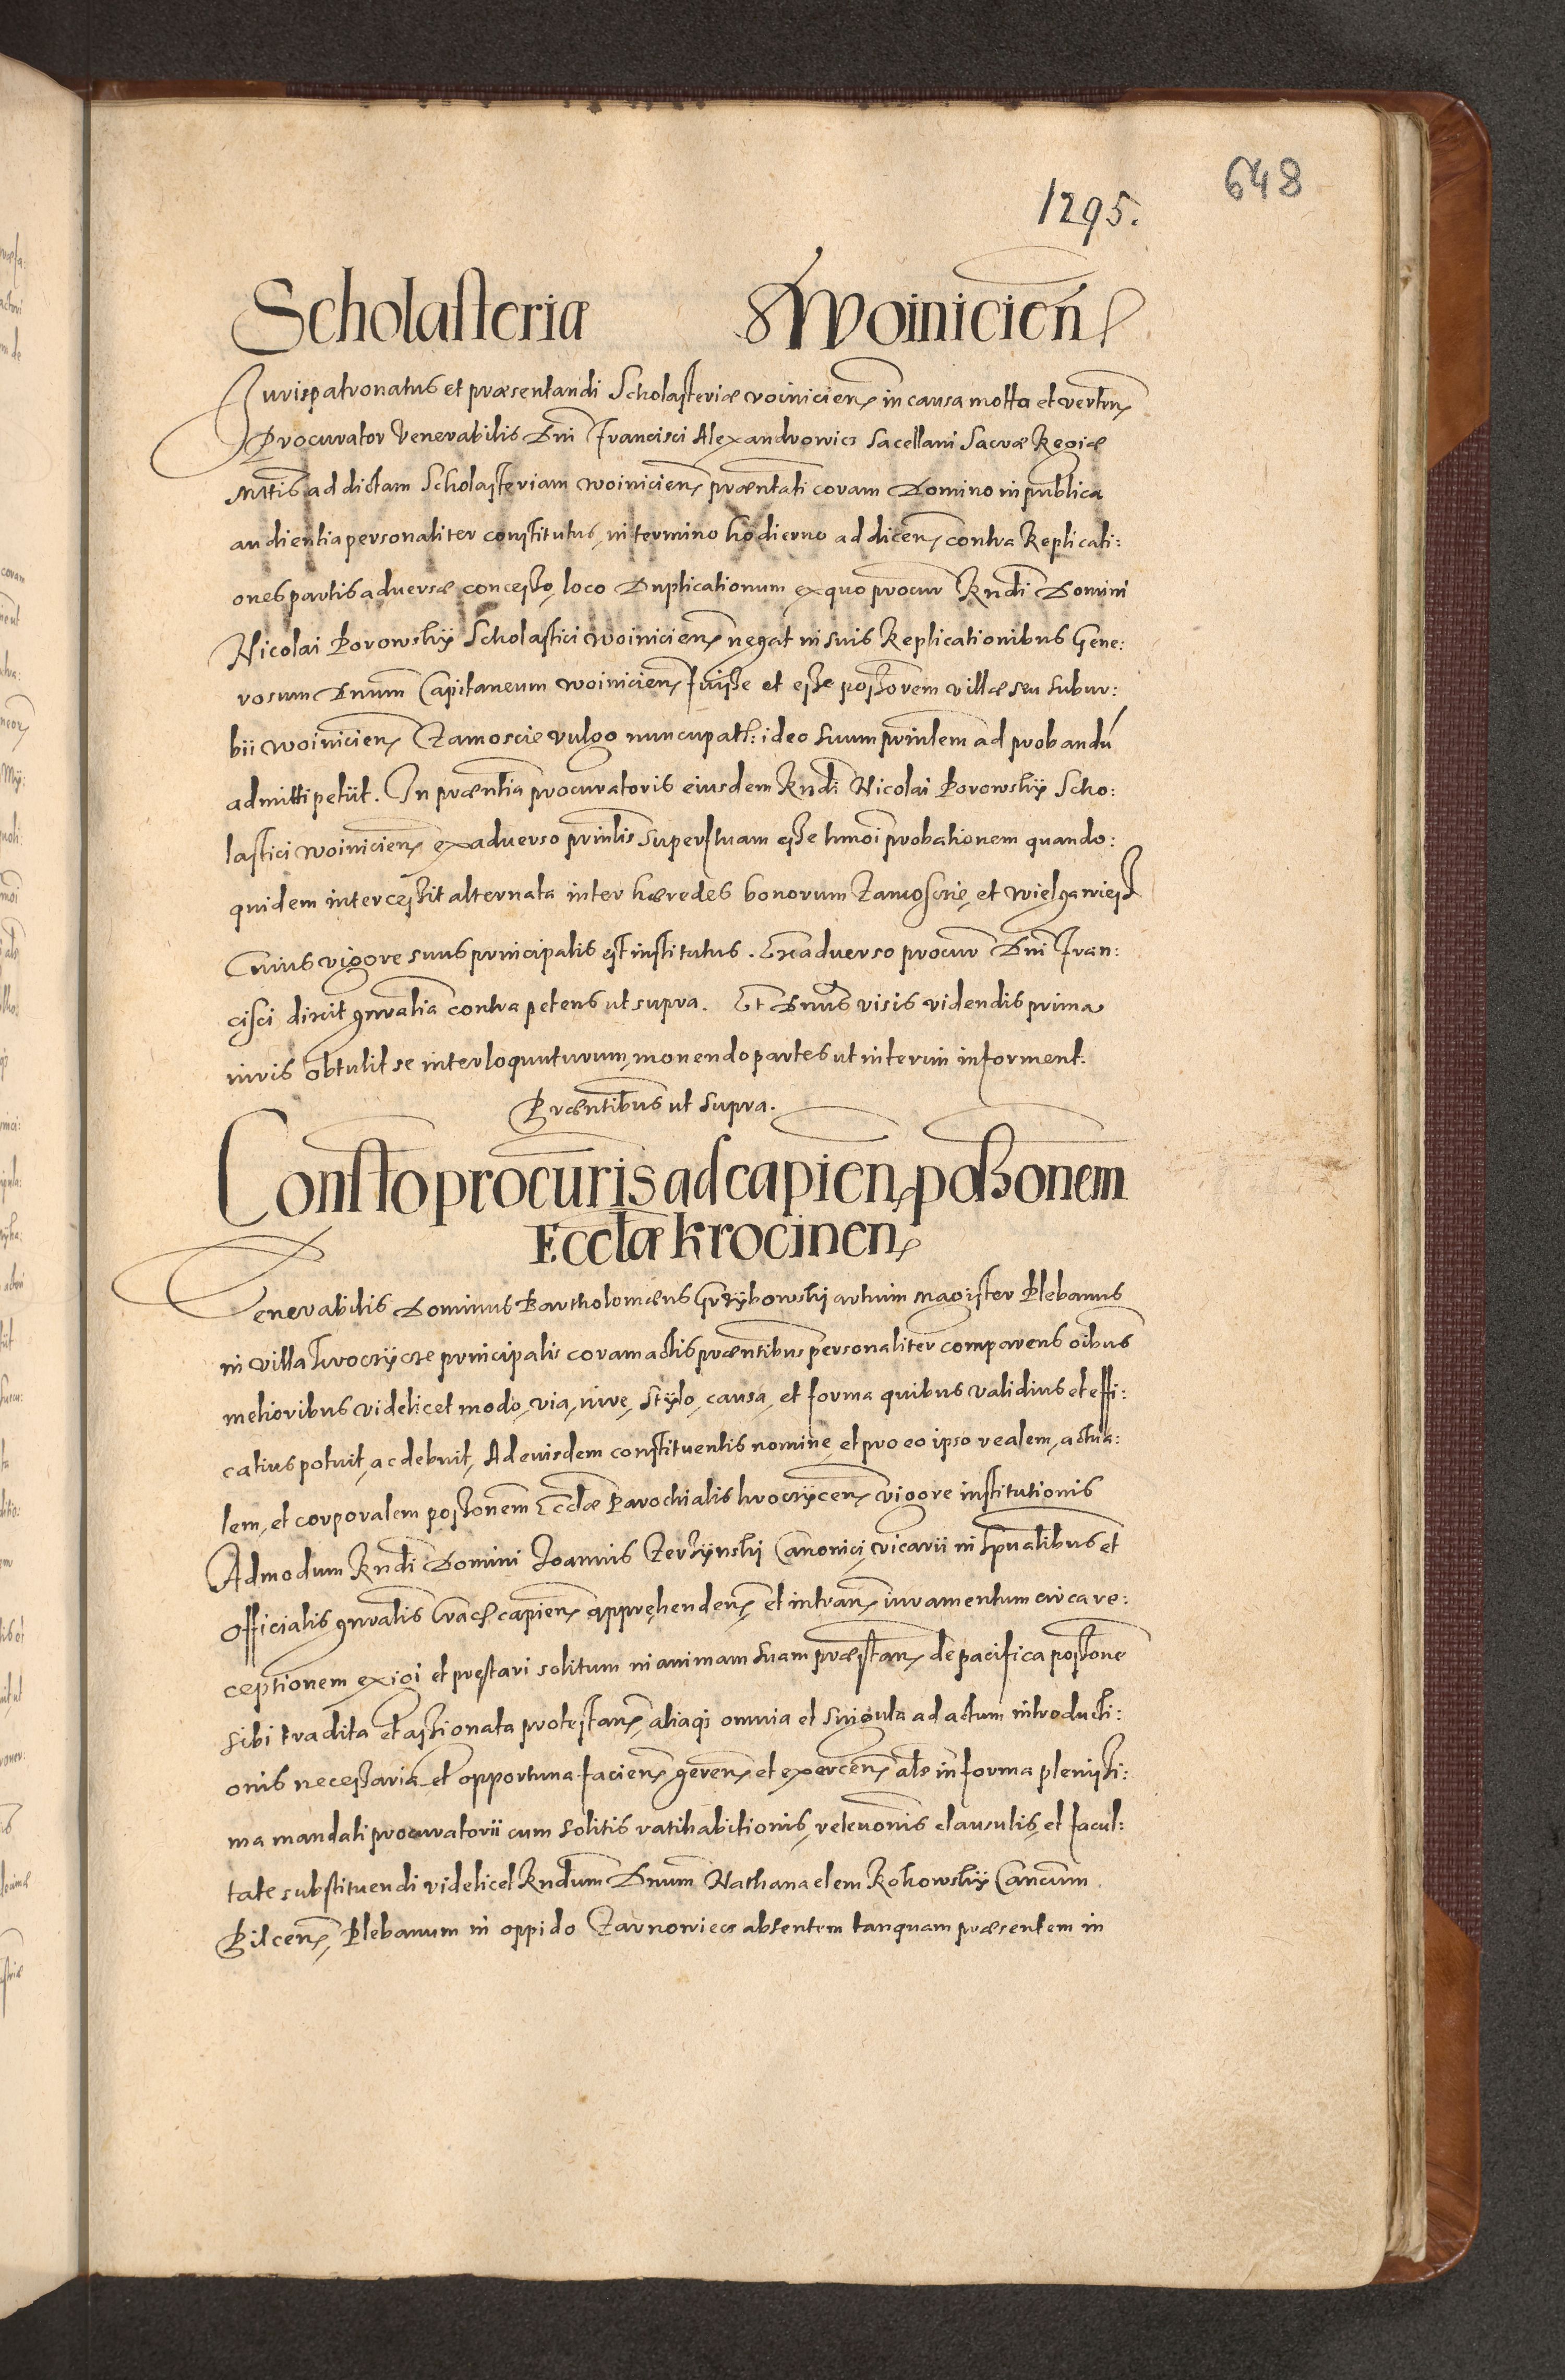 648
1295.
Scholasteriæ Woinicien
Jurispatronatus et præsentandi Scholasteriæ woinicien in causa motta et verten
Procurator Venerabilis Dni Francisci Alexandrowicz Sacellani Sacræ Regiæ
Mttis ad dictam Scholasteriam woinicien præntati coram Domino in publica
audientia personaliter constitutus, in termino hodierno ad dicen contra Replicati:
ones partis adversæ concesso, loco Duplicationum ex quo procur Rndi Domini
Nicolai Borowskÿ Scholastici woinicien negat in suis Replicationibus Gene:
rosum Dnum Capitaneum woinicien fuisse et esse possorem villæ seu subur:
bii woinicien Zamoscie vulgo nuncupatt: ideo suum prinlem ad probandu
admitti petiit. In præntia procuratoris eiusdem Rndi Nicolai Borowskÿ Scho:
lastici woinicien ex adverso prinlis superfluam esse hmoi probationem quando:
quidem intercessit alternata inter hæredes bonorum Zamoscie, et wielgawies
Cuius vigore suus principalis est institutus. Ex adverso procur Dni Fran:
cisci dicit gnralia contra petens ut supra. Et Dnus visis videndis prima
iuris obtulit se interloquuturum, monendo partes ut interim informent.
Præntibus ut supra.
Constto procuris ad capien possonem
Ecclæ krocinen
Venerabilis Dominus Bartholomæus Grzÿbowski artium magister Plebanus
in villa kroczÿcze principalis coram actis præntibus personaliter comparens oibus
melioribus videlicet modo, via, iure, stÿlo, causa, et forma quibus validius et effi:
catius potuit, ac debuit, Ad eiusdem constituentis nomine, et pro eo ipso realem, actua:
lem, et corporalem possonem Ecclæ Parochialis kroczÿcen vigore institutionis
Admodum Rndi Domini Joannis Zerzÿnski Canonici, vicarii in spualibus et
Officialis gnralis Crac capien apprehenden, et intran iuramentum circa re:
ceptionem exigi et prestari solitum in animam suam præstan, de pacifica possone
sibi tradita et assionata protestan, aliaqs omnia et singula ad actum introducti:
onis necessaria et opportuna facien geren et exercen als in forma plenissi:
ma mandati procuratorii cum solitis ratihabitionis, relevonis clausulis, et facul:
tate substituendi videlicet Rndum Dnum Nathanaelem Kohowskÿ Cancum
Pilcen, Plebanum in oppido Zarnowiecz absentem tanquam præsentem in